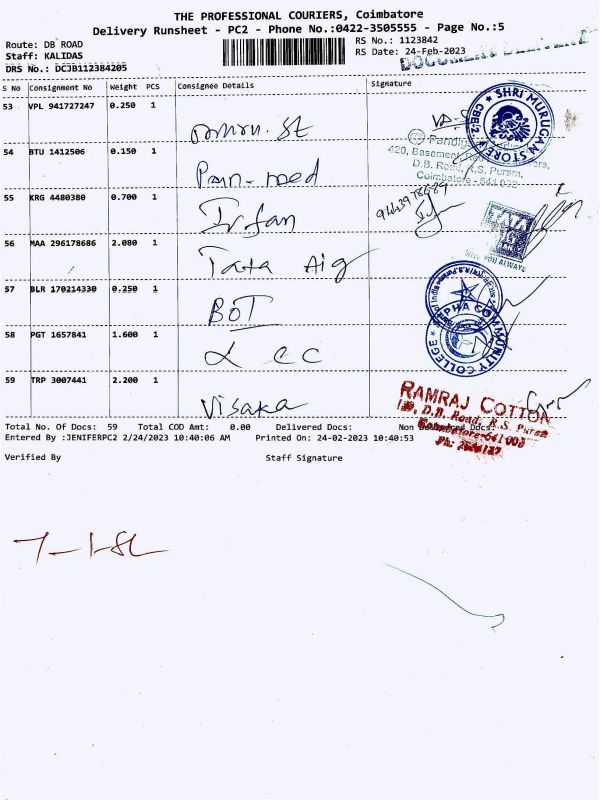 THE PROFESSIONAL COURIERS, Coimbatore
Delivery Runsheet - PC2 - Phone No.:0422-3505555 - Page No.:5
Route: DB ROAD
Staff: KALIDAS
DRS No.: DCJB112384205
RS No.: 1123842
RS Date: 24-Feb-2023
S No Consignment No Weight PCS Consignee Details Signature
53 VPL 941727247 0.250 1
SHRI MURUGAN STORE
CBE-2
54 BTU 1412506 0.150 1
420, Basement
D.B. Road, R.S. Puram,
Coimbatore - 641 002
55 KRG 4480380 0.700 1
Irfan
56 MAA 296178686 2.080 1
Tata Aig
TATA
WITH YOU ALWAYS
57 BLR 170214330 0.250 1
BOT
58 PGT 1657841 1.600 1
α CC
ALPHA COMMUNITY COLLEGE
59 TRP 3007441 2.200 1
Visaka
RAMRAJ COTTON
D.B. Road, R.S. Puram
Coimbatore-641 002
Total No. Of Docs: 59 Total COD Amt: 0.00 Delivered Docs: Non Delivered Docs:
Entered By :JENIFERPC2 2/24/2023 10:40:06 AM Printed On: 24-02-2023 10:40:53
Verified By Staff Signature